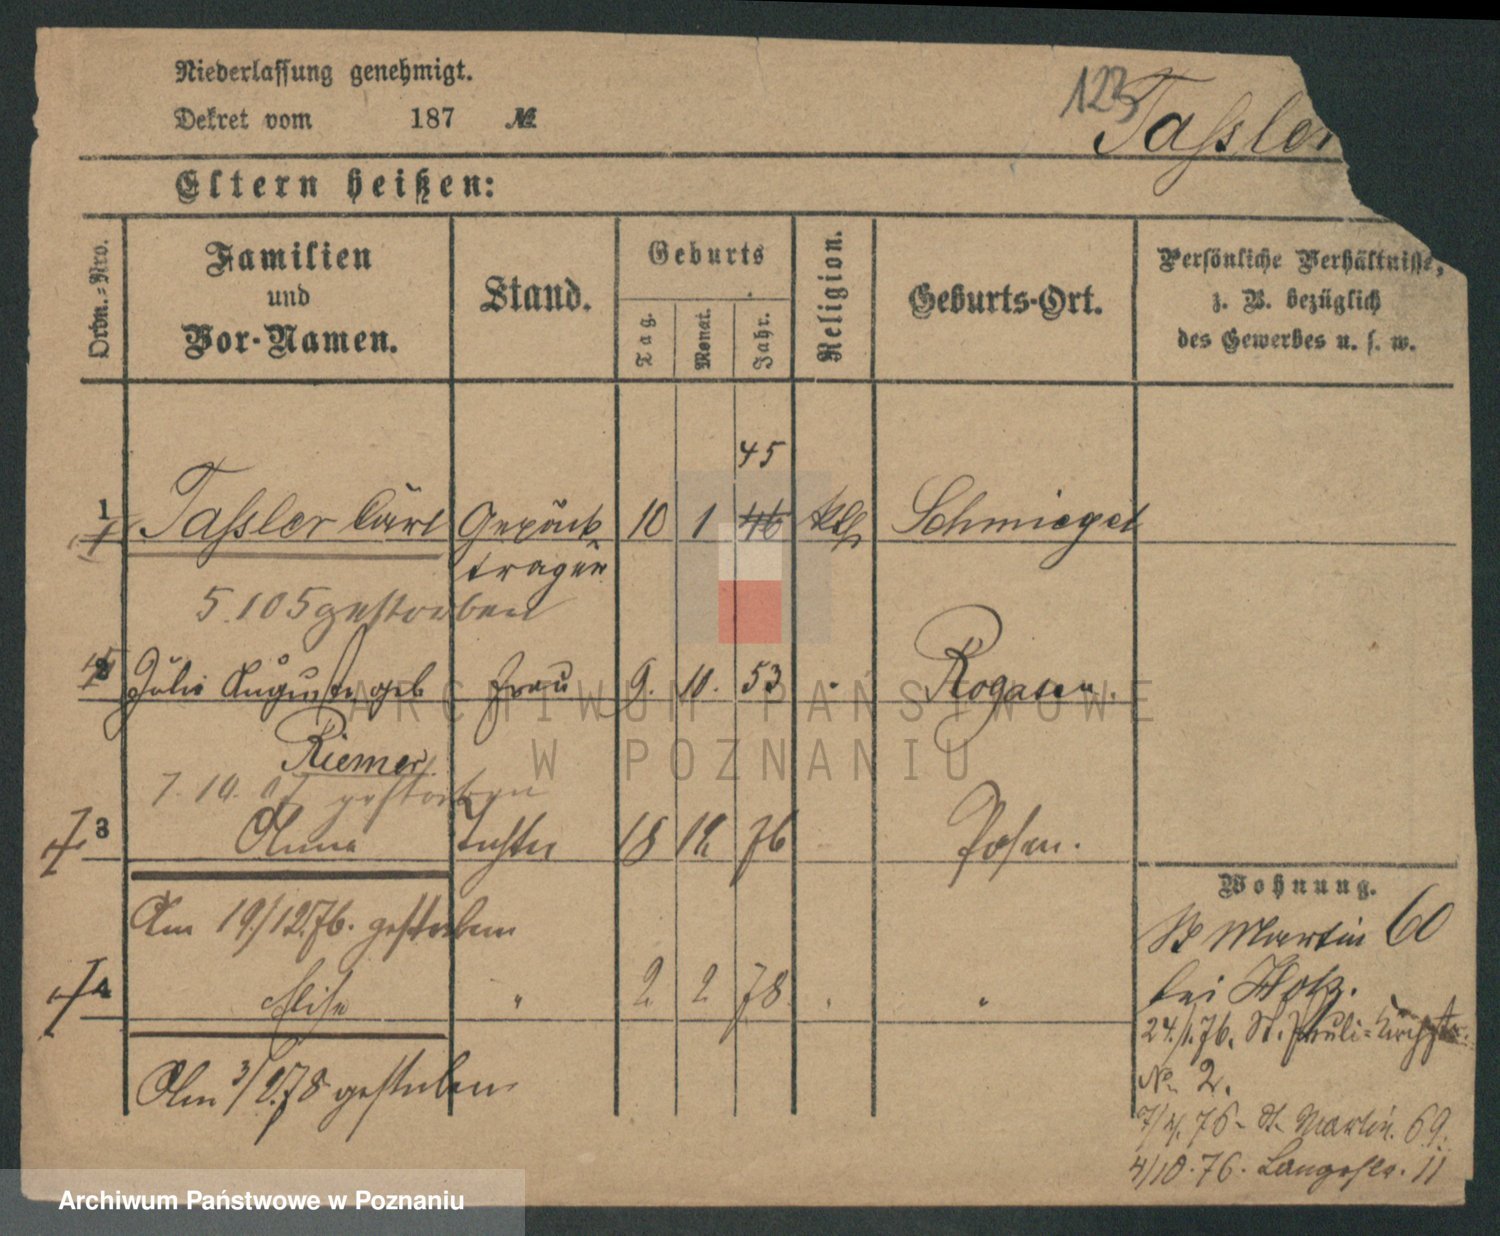 Niederlassung genehmigt.
Dekret vom 187 №
123
Tassler
Eltern heißen:
Ordn.-Nro.
Familien und Vor-Namen.
Stand.
Geburts
Tag.
Monat.
Jahr.
Religion.
Geburts-Ort.
Persönliche Verhältnisse,
z. B. bezüglich
des Gewerbes u. s. w.
45
1 Tassler Carl Gepäck 10 1 46 kth Schmiegel
träger
5.10 5 gestorben
2 Julie Auguste geb Frau 9. 10. 53 " Rogasen.
Riemer.
7.10. gestorben
3 Anna Tochter 18 12 76 Posen.
Am 19./12.76. gestorben
4 Elise " 2 2 78 " "
Am 3/2.78 gestorben
Wohnung.
St Martin 60
bei Holz.
24./1.76. St. Pauli-Kirchstr.
No 2.
7/4. 76- St. Martin. 69.
4/10.76. Langestr. 11
ARCHIWUM PAŃSTWOWE
W POZNANIU
Archiwum Państwowe w Poznaniu